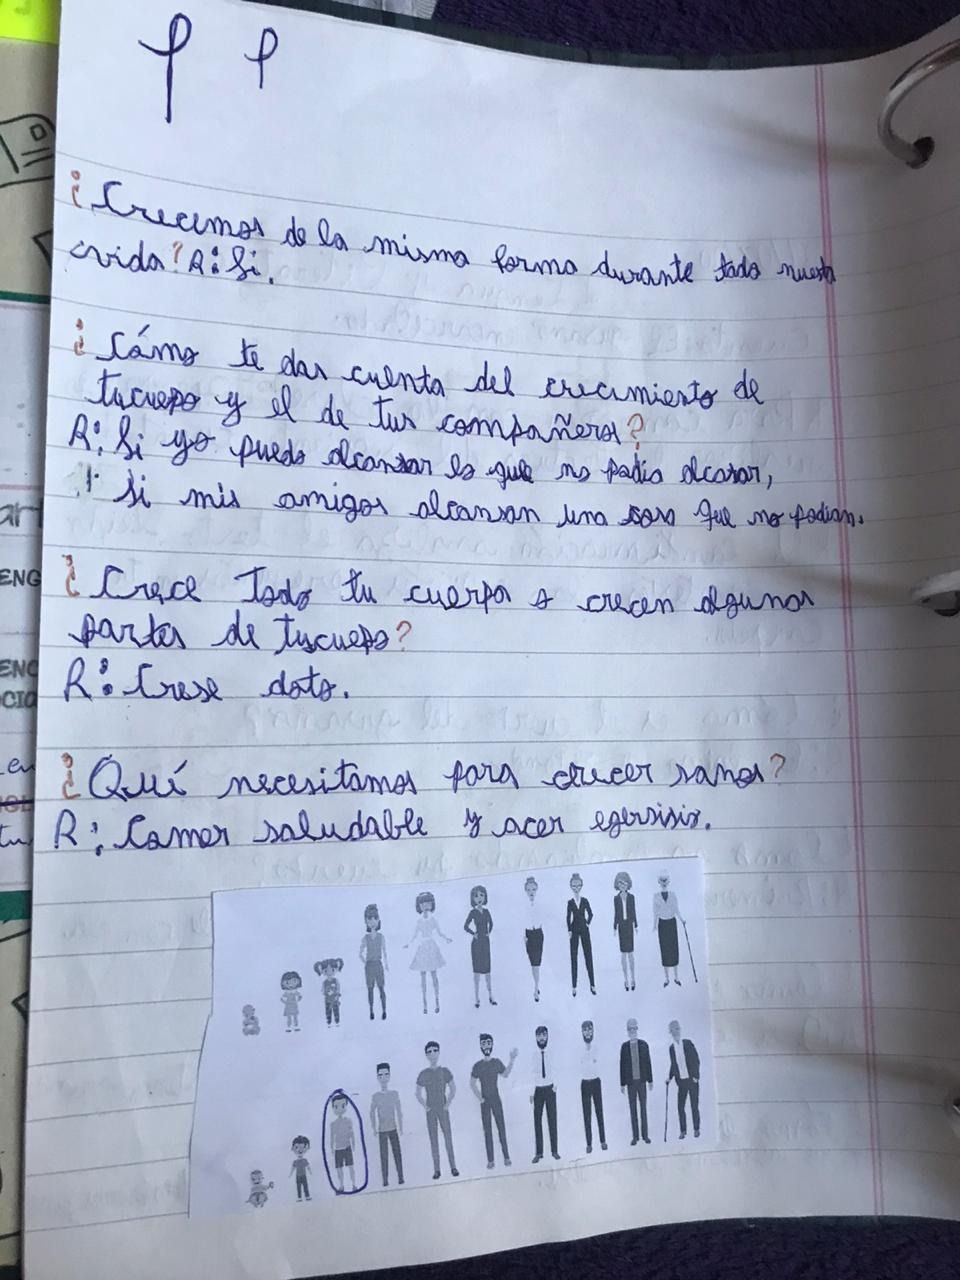 ¿Crecemos de la misma forma durante toda nuesta
vida? R: Si.
¿Cómo te das cuenta del crecimiento de
tucuepo y el de tus compañeros?
R: Si yo puedo alcansar lo que no podia alcasar,
Si mis amigos alcansan una cosa que no podian.
¿Crece todo tu cuerpo o crecen algunas
partes de tucuepo?
R: Crese doto.
¿Qué necesitamos para crecer sanos?
R: Comer saludable y acer egersisio.
ENG